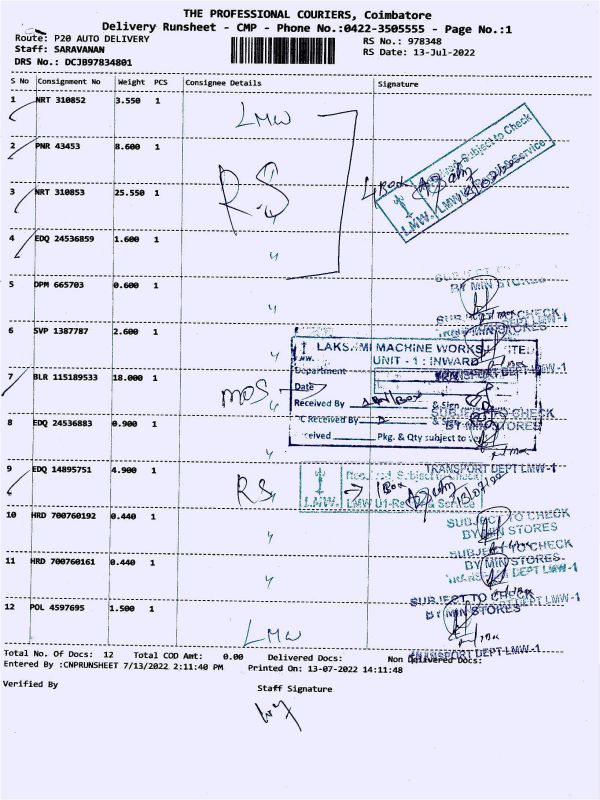 THE PROFESSIONAL COURIERS, Coimbatore
Delivery Runsheet - CMP - Phone No.:0422-3505555 - Page No.:1
Route: P20 AUTO DELIVERY
RS No.: 978348
Staff: SARAVANAN
RS Date: 13-Jul-2022
DRS No.: DCJB97834801
S No Consignment No Weight PCS Consignee Details Signature
1 NRT 310852 3.550 1 LMW
2 PNR 43453 8.600 1
Subject to Check
LMW
3 NRT 310853 25.550 1 R.S
4 EDQ 24536859 1.600 1 "
5 DPM 665703 0.600 1 "
BY MIN STORES
SUBJECT TO CHECK
6 SVP 1387787 2.600 1 "
LAKSHMI MACHINE WORKS LIMITED
UNIT - 1 : INWARD
Department
TRANSPORT DEPT LMW-1
Date
7 BLR 115189533 18.000 1 MOS "
Received By & Sign
SUBJECT TO CHECK
BY MIN STORES
8 EDQ 24536883 0.900 1 "
Received Pkg. & Qty subject to
TRANSPORT DEPT LMW-1
9 EDQ 14895751 4.900 1 RS
Received Subject to Check
LMW LMW U1-Receipt & Service
1 Box 13/07/22
10 HRD 700760192 0.440 1 "
SUBJECT TO CHECK
BY MIN STORES
11 HRD 700760161 0.440 1 "
SUBJECT TO CHECK
BY MIN STORES
TRANSPORT DEPT LMW-1
12 POL 4597695 1.500 1 LMW
SUBJECT TO CHECK
BY MIN STORES
TRANSPORT DEPT LMW-1
Total No. Of Docs: 12 Total COD Amt: 0.00 Delivered Docs: Non Delivered Docs:
Entered By :CNPRUNSHEET 7/13/2022 2:11:40 PM Printed On: 13-07-2022 14:11:48
Verified By
Staff Signature